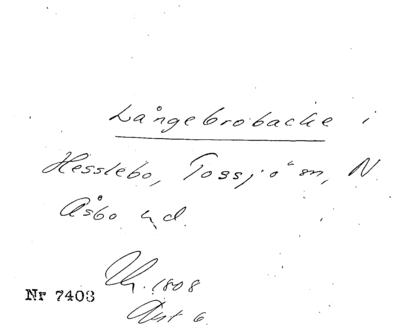 Långebrobacke i
Hesslebo, Tossjö sn, N
Åsbo hd.
Th. 1808
Nr 7403
Akt 6.